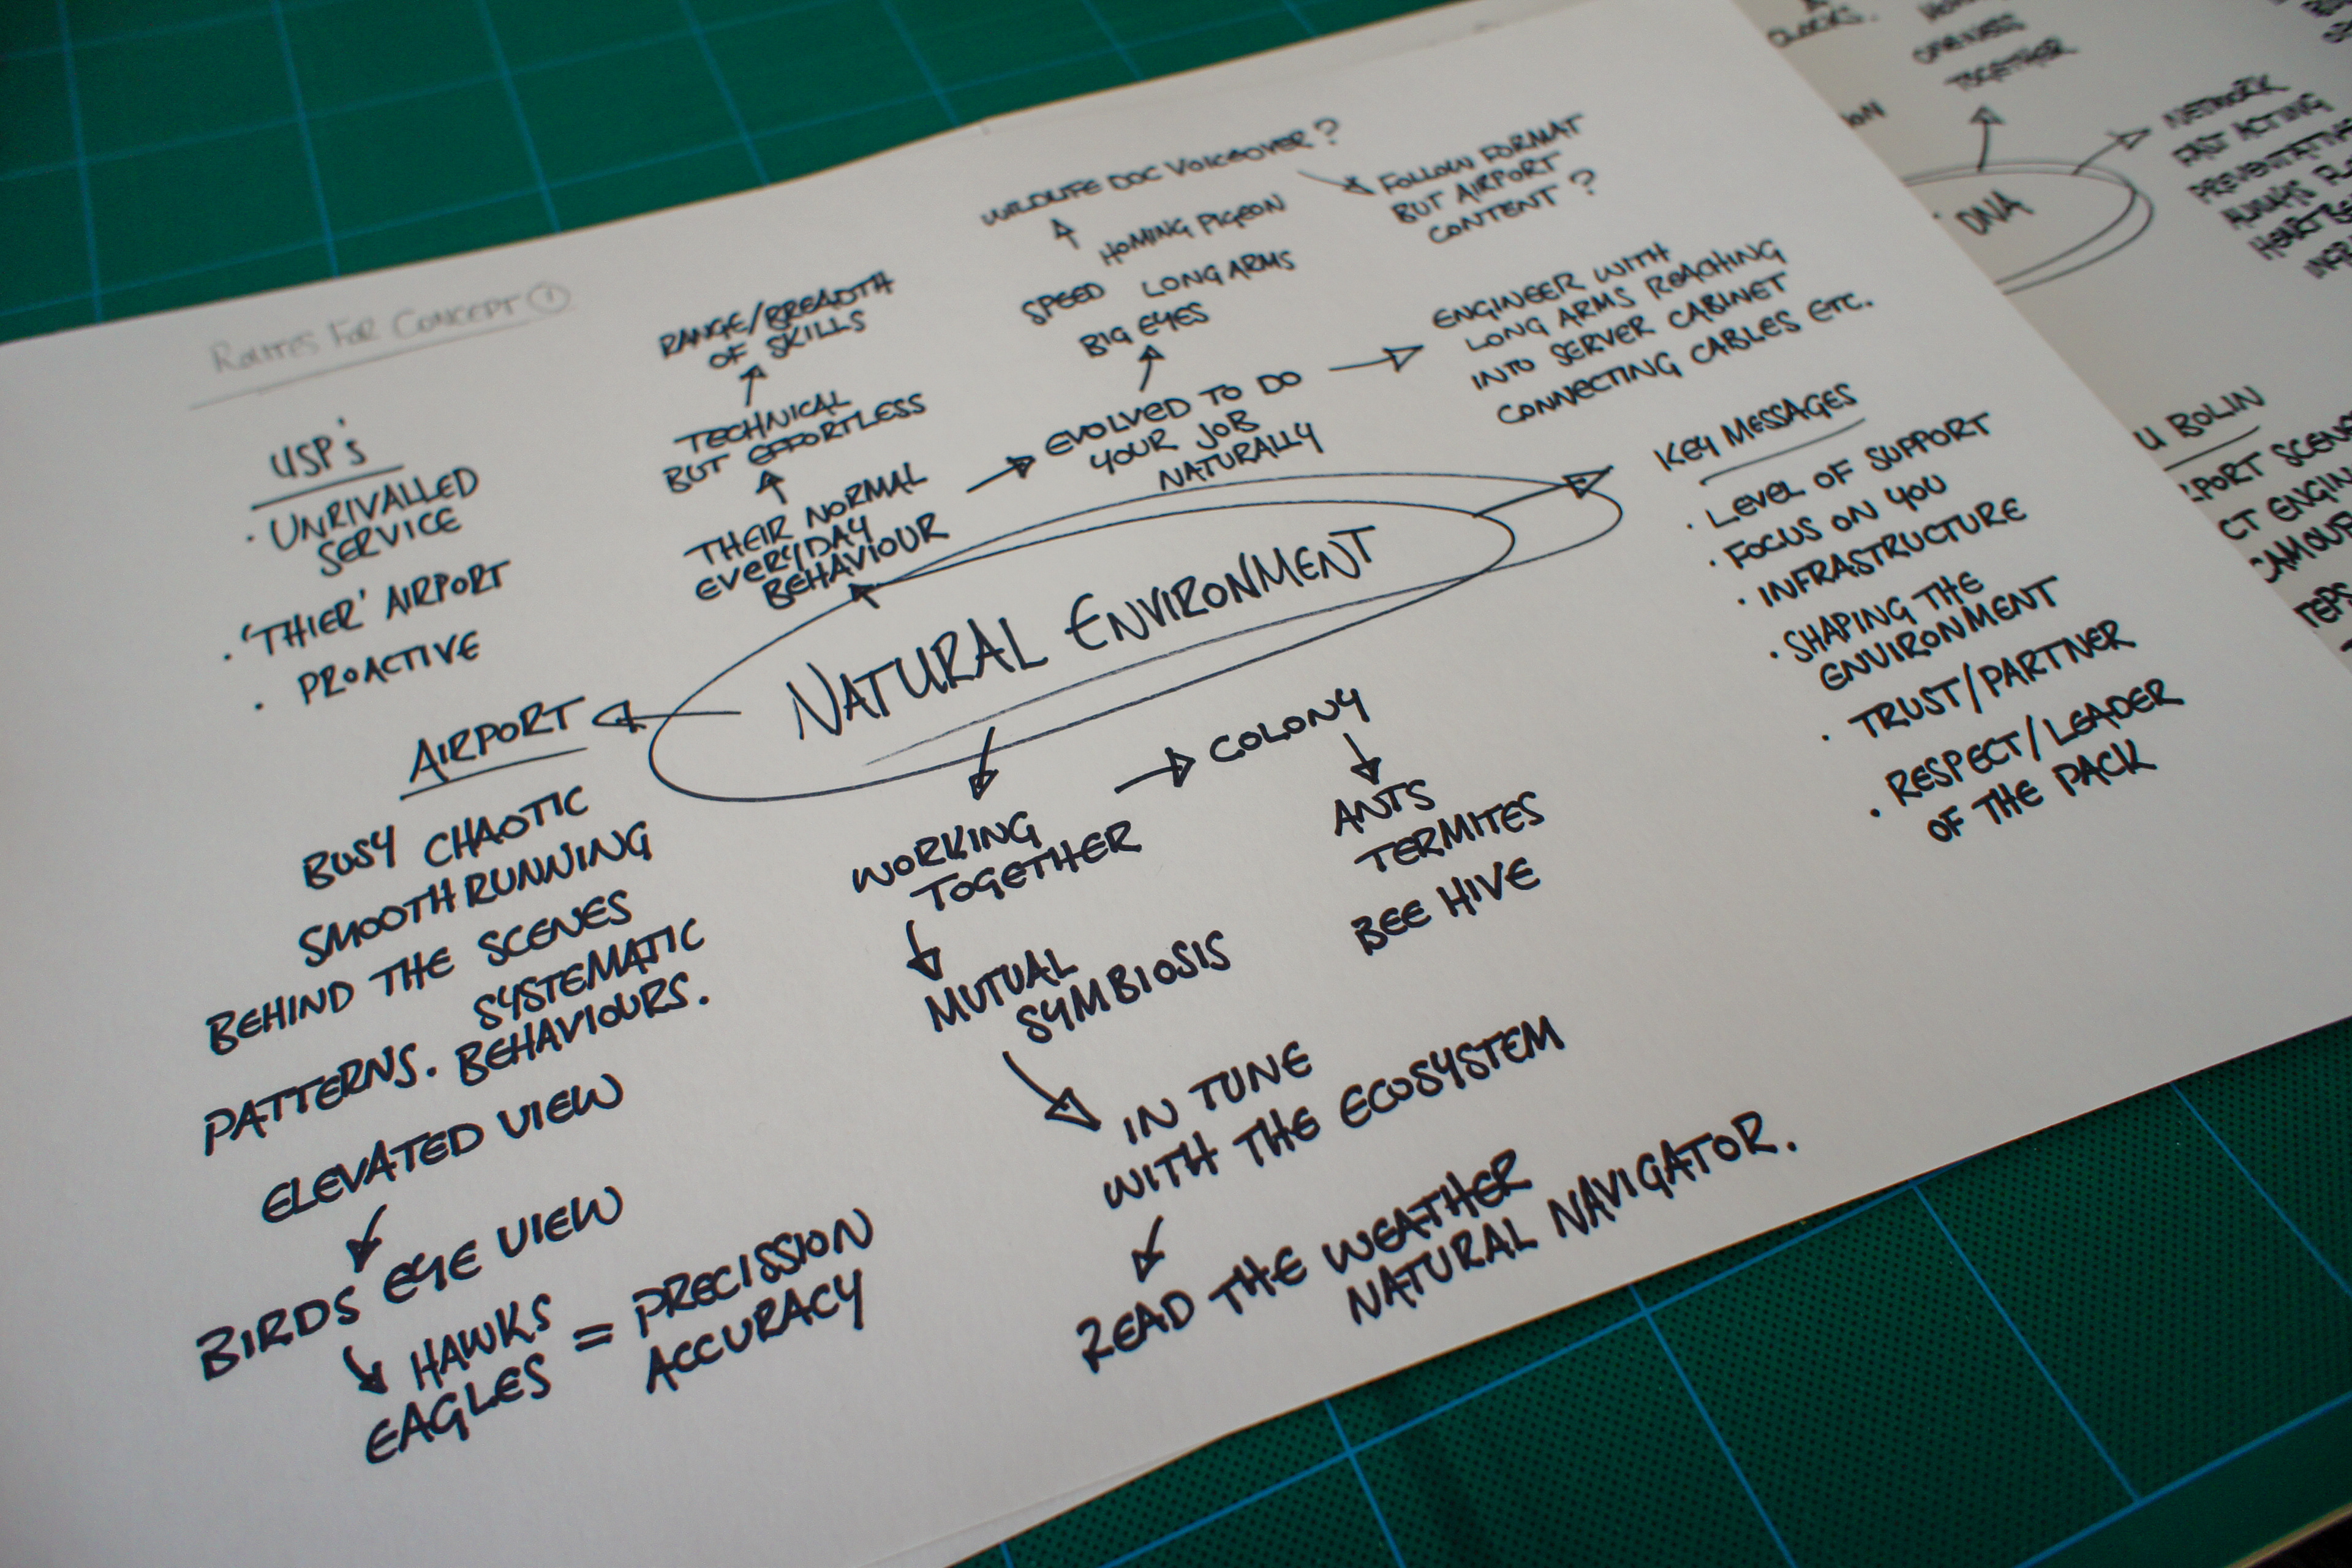 ROUTES FOR CONCEPT 1
USP's
· UNRIVALLED
SERVICE
· 'THIER' AIRPORT
· PROACTIVE
RANGE/BREADTH
OF SKILLS
TECHNICAL
BUT EFFORTLESS
THEIR NORMAL
EVERYDAY
BEHAVIOUR
WILDLIFE DOC VOICEOVER?
HOMING PIGEON
SPEED LONG ARMS
BIG EYES
FOLLOW FORMAT
BUT AIRPORT
CONTENT?
EVOLVED TO DO
YOUR JOB
NATURALLY
ENGINEER WITH
LONG ARMS REACHING
INTO SERVER CABINET
CONNECTING CABLES ETC.
NATURAL ENVIRONMENT
KEY MESSAGES
· LEVEL OF SUPPORT
· FOCUS ON YOU
· INFRASTRUCTURE
· SHAPING THE
ENVIRONMENT
· TRUST/PARTNER
· RESPECT/LEADER
OF THE PACK
AIRPORT
BUSY CHAOTIC
SMOOTH RUNNING
BEHIND THE SCENES
SYSTEMATIC
PATTERNS. BEHAVIOURS.
ELEVATED VIEW
BIRDS EYE VIEW
HAWKS
EAGLES = PRECISSION
ACCURACY
WORKING
TOGETHER
COLONY
ANTS
TERMITES
BEE HIVE
MUTUAL
SYMBIOSIS
IN TUNE
WITH THE ECOSYSTEM
READ THE WEATHER
NATURAL NAVIGATOR.
CLOCKS.
TOGETHER
DNA
NETWORK
FAST ACTING
U BOLIN